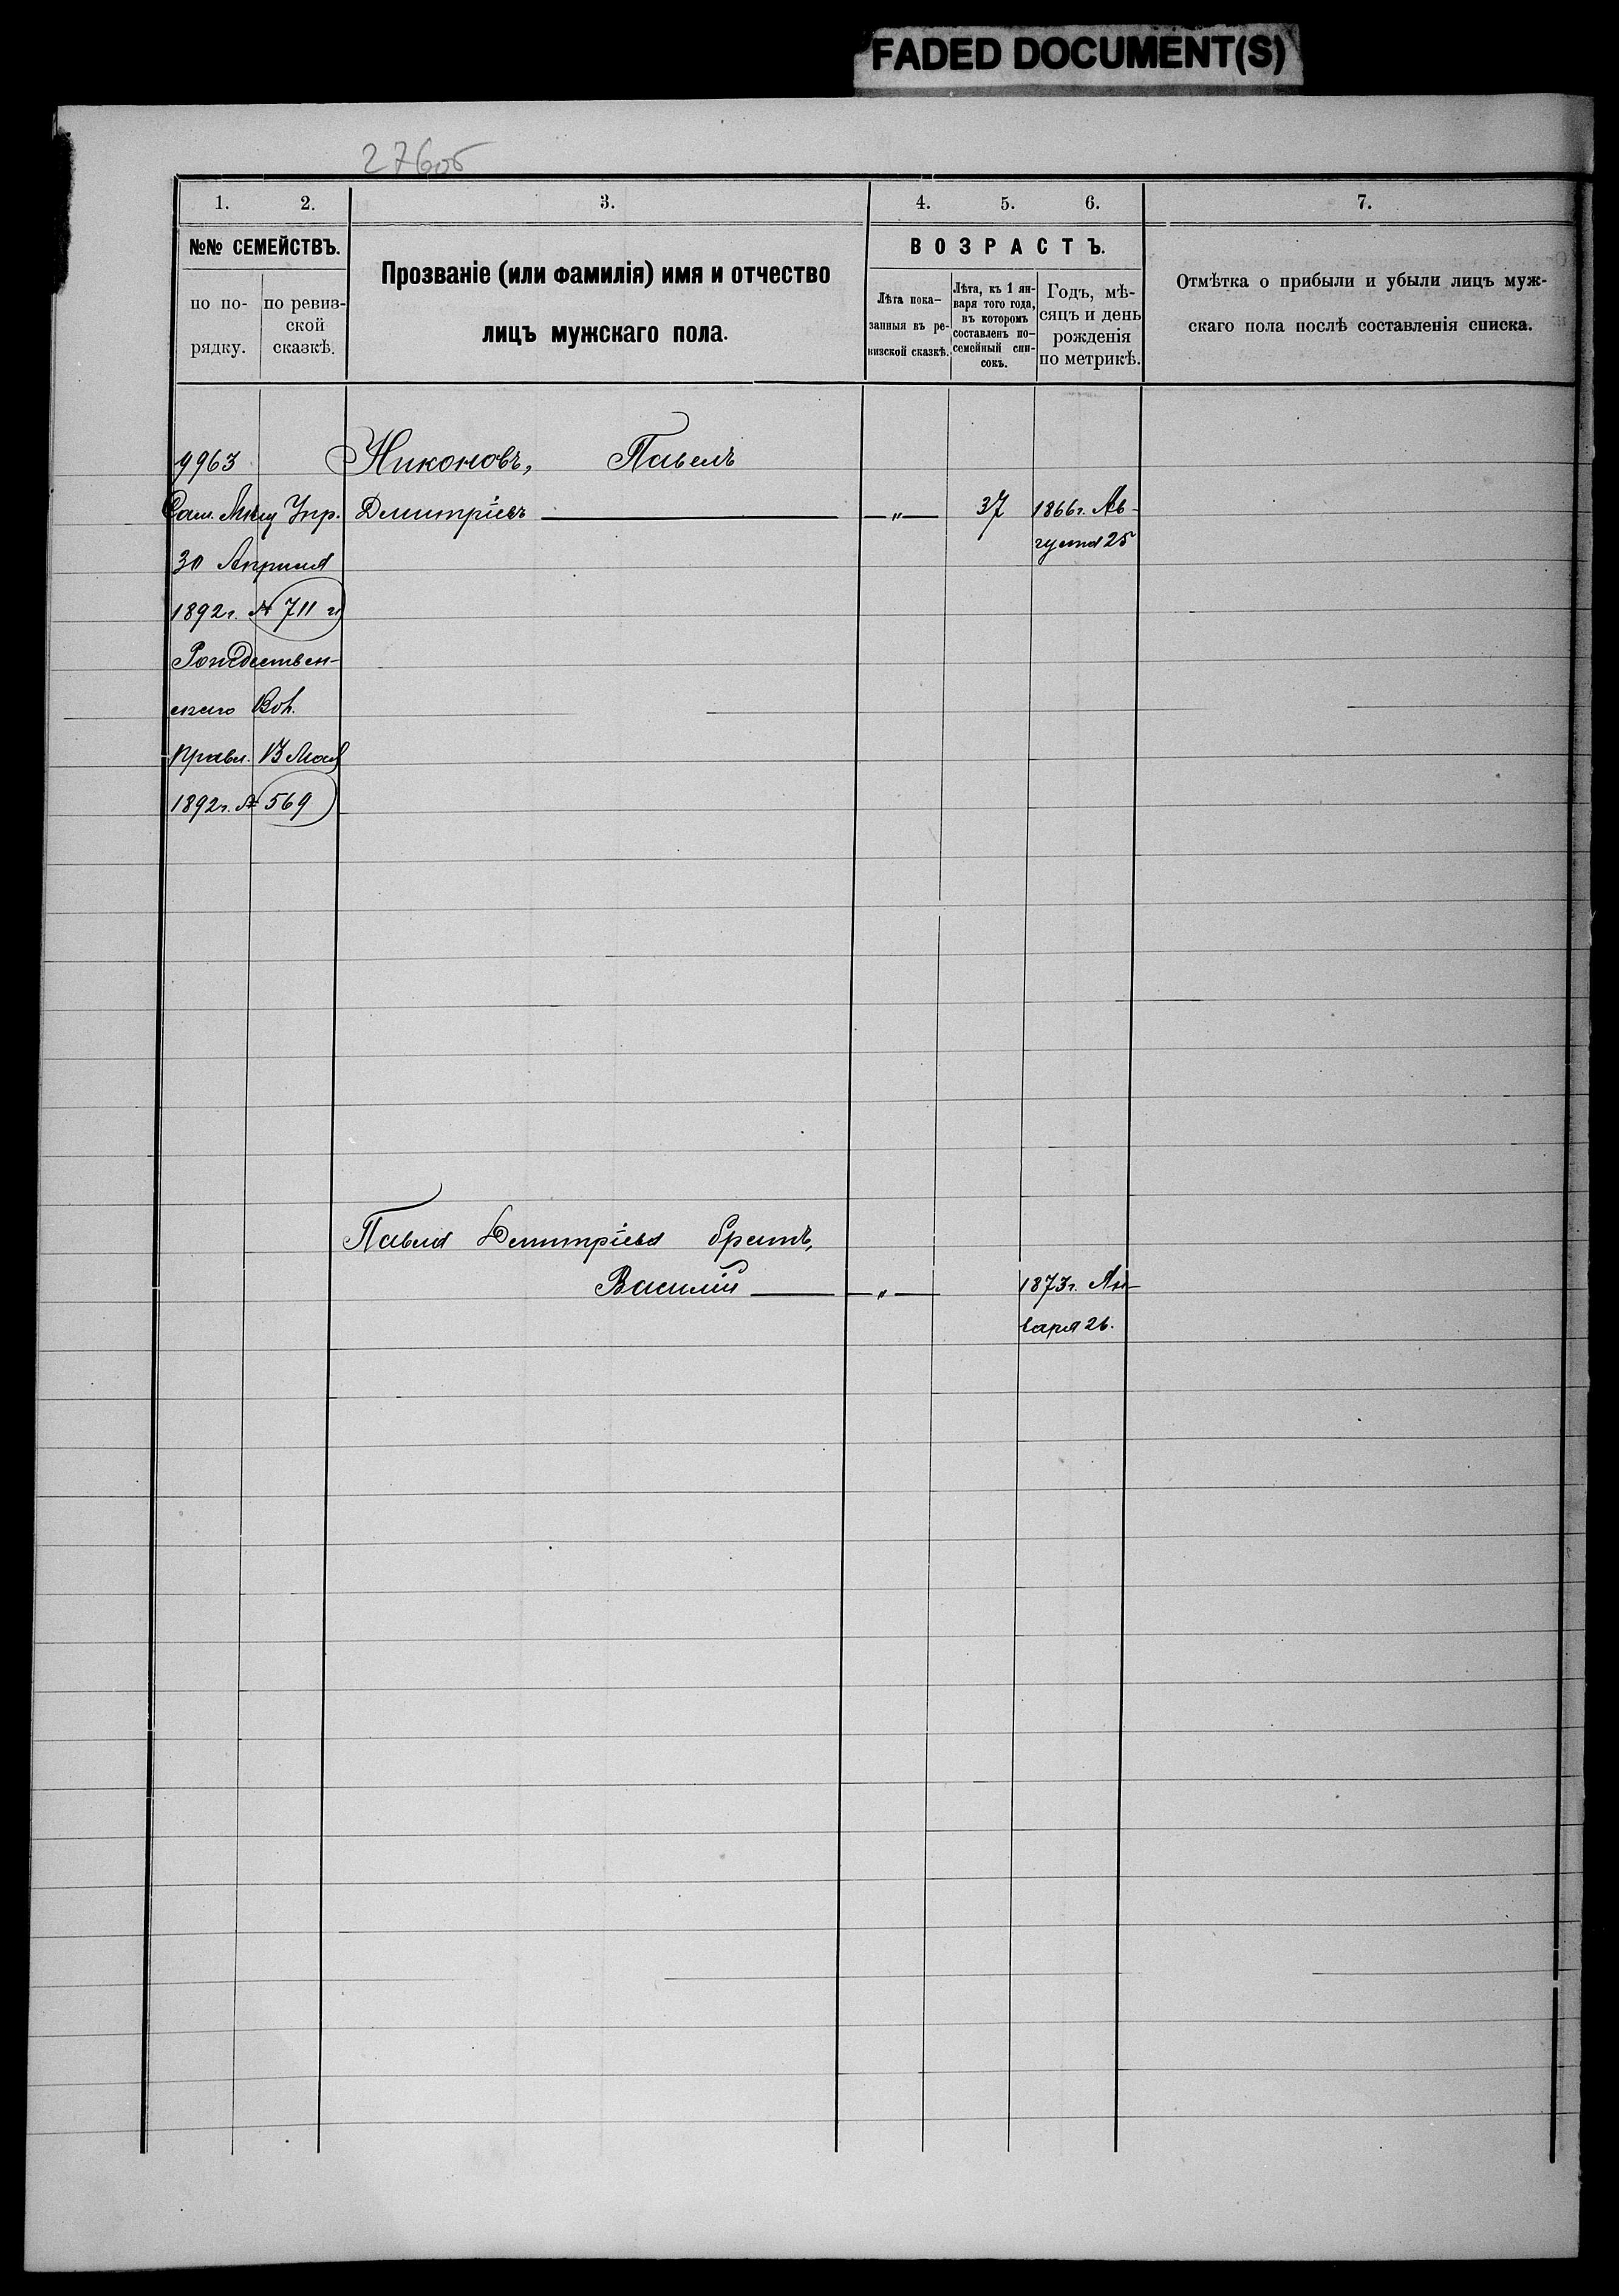 FADED DOCUMENT(S)
276об
1. 2. 3. 4. 5. 6. 7.
№№ СЕМЕЙСТВЪ.
по по-
рядку.
по ревиз-
ской
сказкѣ.
Прозваніе (или фамилія) имя и отчество
лицъ мужскаго пола.
ВОЗРАСТЪ.
Лѣта пока-
занныя въ ре-
визской сказкѣ.
Лѣта, къ 1 ян-
варя того года,
въ которомъ
составленъ по-
семейный спи-
сокъ.
Годъ, мѣ-
сяцъ и день
рожденія
по метрикѣ.
Отмѣтка о прибыли и убыли лицъ муж-
скаго пола послѣ составленія списка.
9963 Никоновъ, Павелъ
Сам. Мѣщ Упр. Дмитріевъ — „ — 37 1866г. Ав-
густа 25
30 Апрѣля
1892г. № 711 и
Рождествен-
скаго Вол.
Правл. 13 Мая
1892г. № 569
Павла Дмитріева братъ,
Василій — „ — 1873г. Ян-
варя 26.